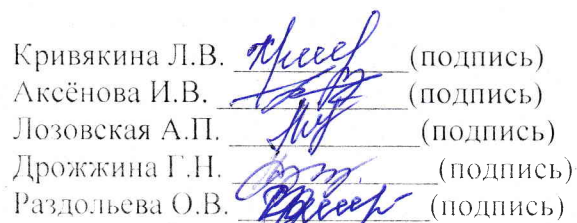 Кривякина Л.В. (подпись)
Аксёнова И.В. (подпись)
Лозовская А.П. (подпись)
Дрожжина Г.Н. (подпись)
Раздольева О.В. (подпись)